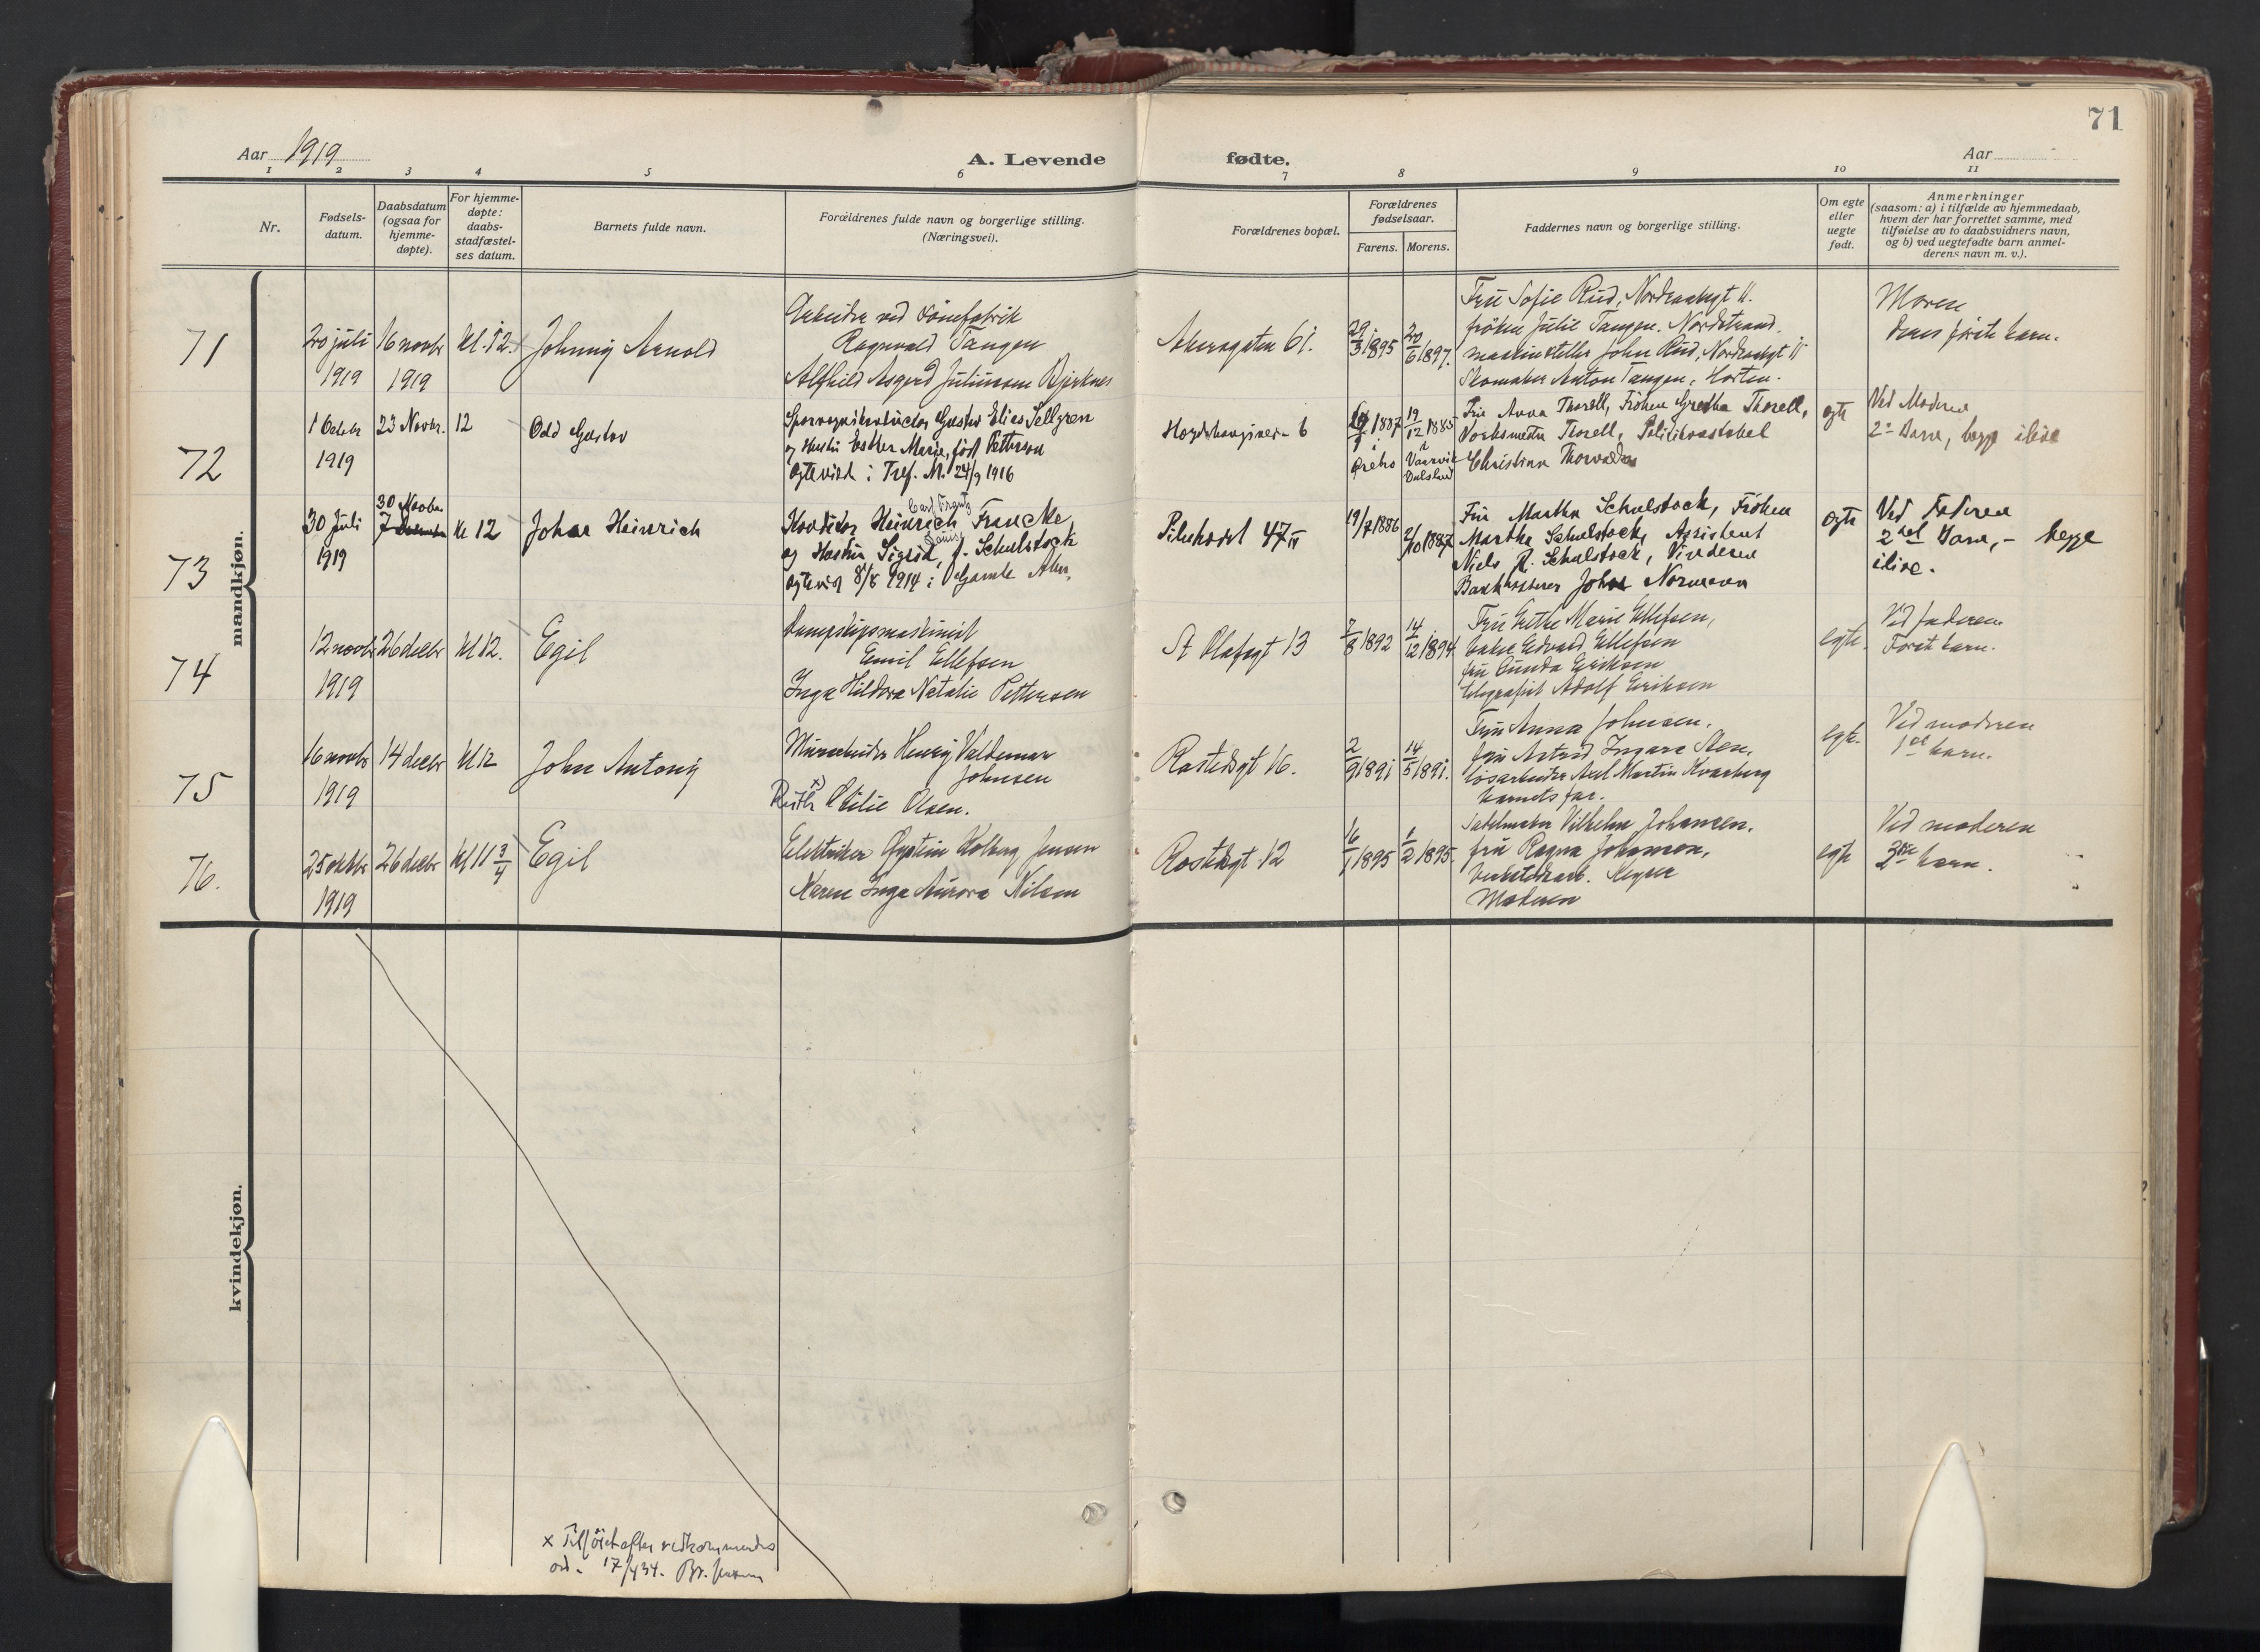 71
Aar 1919
A. Levende
fødte.
Aar
1 2 3 4 5 6 7 8 9 10 11
Nr.
Fødsels-
datum.
Daabsdatum
(ogsaa for
hjemme-
døpte).
For hjemme-
døpte:
daabs-
stadfæstel-
ses datum.
Barnets fulde navn.
Forældrenes fulde navn og borgerlige stilling.
(Næringsvei).
Forældrenes bopæl.
Forældrenes
fødselsaar.
Farens. Morens.
Faddernes navn og borgerlige stilling.
Om egte
eller
uegte
født.
Anmerkninger
(saasom: a) i tilfælde av hjemmedaab,
hvem der har forrettet samme, med
tilføielse av to daabsvidners navn,
og b) ved uegtefødte barn anmel-
derens navn m. v.).
mandkjøn.
71
20 juli
1919
16 novbr
1919
kl. 12.
Johnny Arnold
Arbeider ved
Ragnvald Tangen
Alfhild Asgerd Juliussen Bjerknes
Akersgaten 61.
29/3 1895
20/6 1897.
Fru Sofie Rud, Nordraaksgt 11.
frøken Julie Tangen. Nordstrand.
maskinsteller John Rud, Nordraaksgt 11
Skomaker Anton Tangen, Horten.
Moren
deres første barn.
72
1 Octobr
1919
23 Novbr.
12
Odd Gustav
Sporvognskonduktør Gustav Elias Sellgren
og Hustru Esther Marie, født Petterson
Egteviet i Tref. M. 24/9 1916
6
1887
i
Örebro
19/12 1885
i
Fru Anna Thorell, Frøken Gretha Thorell,
Thorell, Politikonstabel
Christian
egte
Ved Moderen
2 Barn, begge ilive
73
30 Juli
1919
30 Novbr
7
kl 12
Johan Heinrich
Carl Frantz
Konditor Heinrich Francke
Louise
og Hustru Sigrid, f. Schulstock
egteviet 8/8 1914 i Gamle Aker.
Pilestrædet 47 IV
19/7 1886
2/10 1887
Fru Martha Schulstock, Frøken
Marthe Schulstock, Assistent
Niels R. Schulstock, Vinderen
Bankkasserer Johan Normann
egte
Ved Faderen
2det Barn, - begge
ilive.
74
12 novbr
1919
26 decbr
kl 12.
Egil
Dampskipsmaskinist
Emil Ellefsen
Inga Hildora Natalie Pettersen
St Olafsgt 13
7/8 1892
14/12 1894
Fru Grethe Marie Ellefsen,
baker Edvard Ellefsen
fru Gunda Eriksen
telegrafist Adolf Eriksen
egte.
Ved faderen
Første barn.
75
16 novbr
1919
14 decbr
kl 12
John Antony
Murarbeider Henry Valdemar
Johnsen
x)
Ruth Otilie Olsen.
Rostedsgt 16.
2/9 1891
14/5 1891.
Fru Anna Johnsen.
fru Astrid Ingara Sten,
løsarbeider Axel Martin Kvarberg
barnets far.
egte.
Ved moderen
1ste barn.
76.
25 oktbr
1919
26 decbr
kl 11 3/4
Egil
Elektriker Øystein Kolberg Jensen
Karen Inga Aurora Nilsen
Rostedsgt 12
16/1 1895
1/2 1895.
Salmaker Vilhelm Johansen.
fru Ragna Johansen,
Verkstedsarb. Keyser
Moderen
egte
Ved moderen
2det barn.
kvindekjøn.
x Tilføiet efter vedkommendes
ord. 17/4 34.